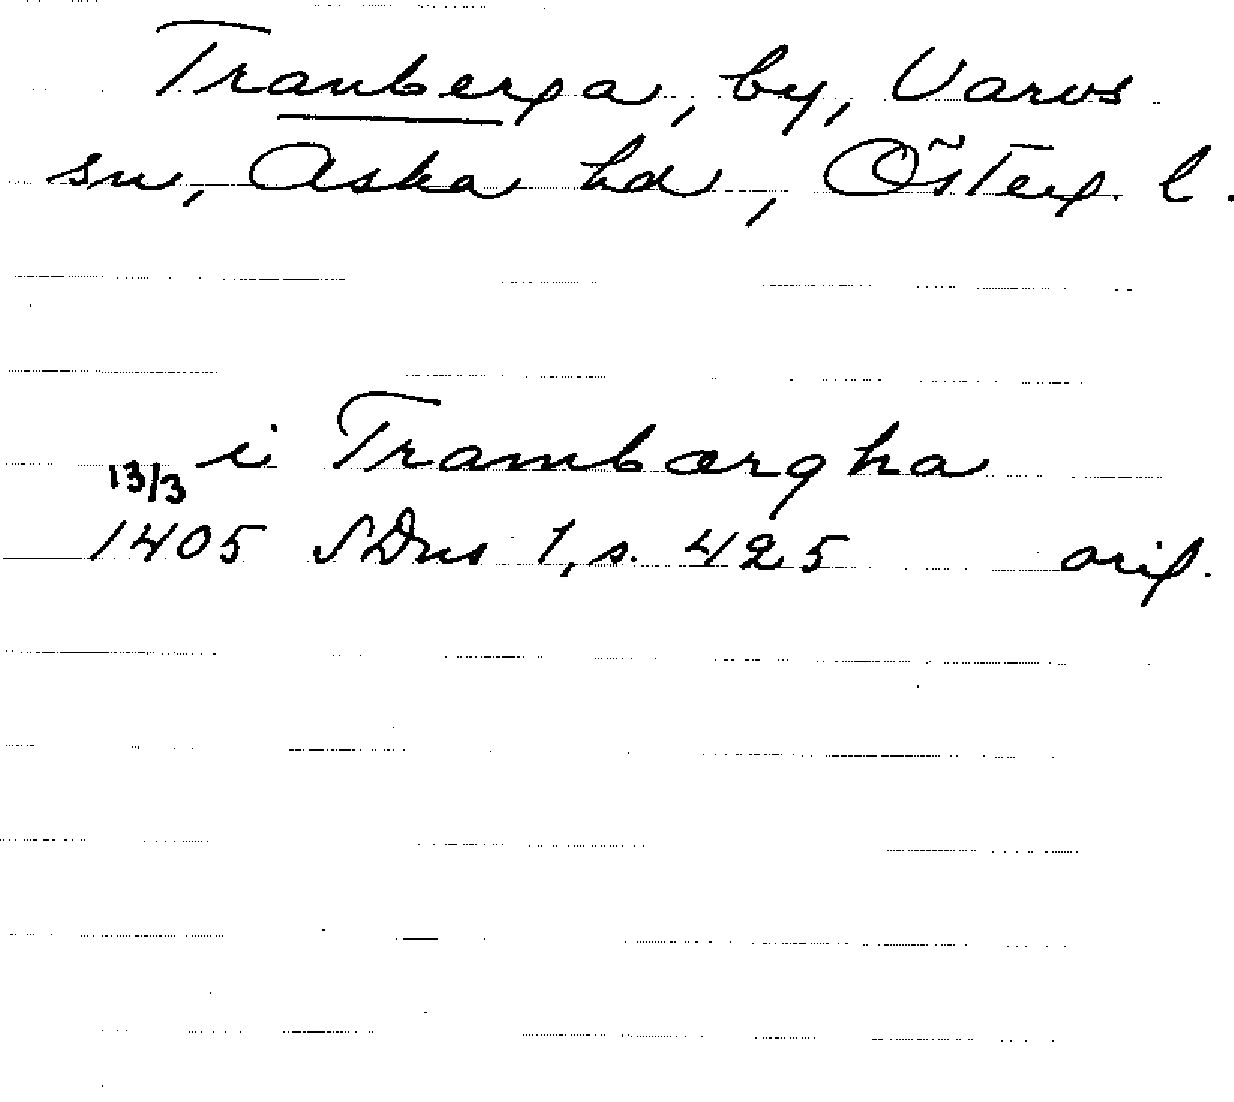 Tranberga, by, Varvs
sn, Aska hd, Österg. l.
i Trambærgha
13/3
1405 SDns 1, s. 425 orig.